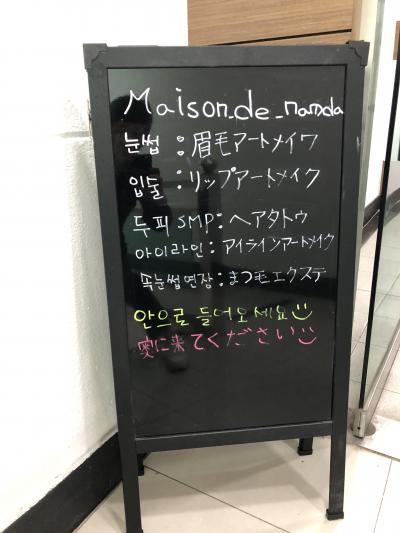 Maison_de_namda
눈썹 : 眉毛アートメイク
입술 : リップアートメイク
두피 SMP : ヘアタトゥ
아이라인 : アイラインアートメイク
속눈썹연장 : まつ毛エクステ
안으로 들어오세요
奥に来てください